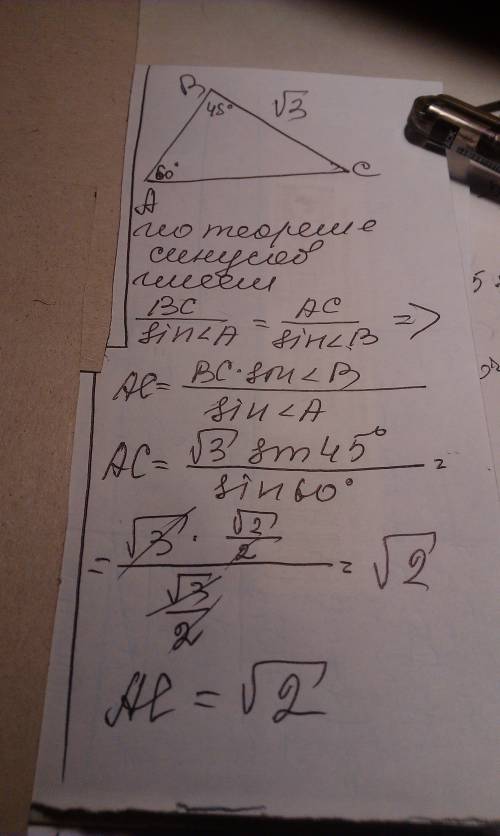 B
45°
√3
60°
C
A
по теореме
синусов
имеем
BC/sin<A = AC/sin<B =>
AC = BC·sin<B/sin<A
AC = √3 sin45°/sin60° =
= √3 · √2/2 / √3/2 = √2
AC = √2